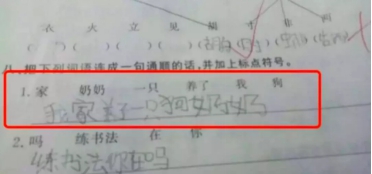 衣 火 立 见 福 寸 非 网
八、把下列词语连成一句通顺的话,并加上标点符号。
1. 家 奶奶 一只 养了 我 狗
我家养了一只狗奶奶
2. 吗 练书法 在 你
练书法你在吗